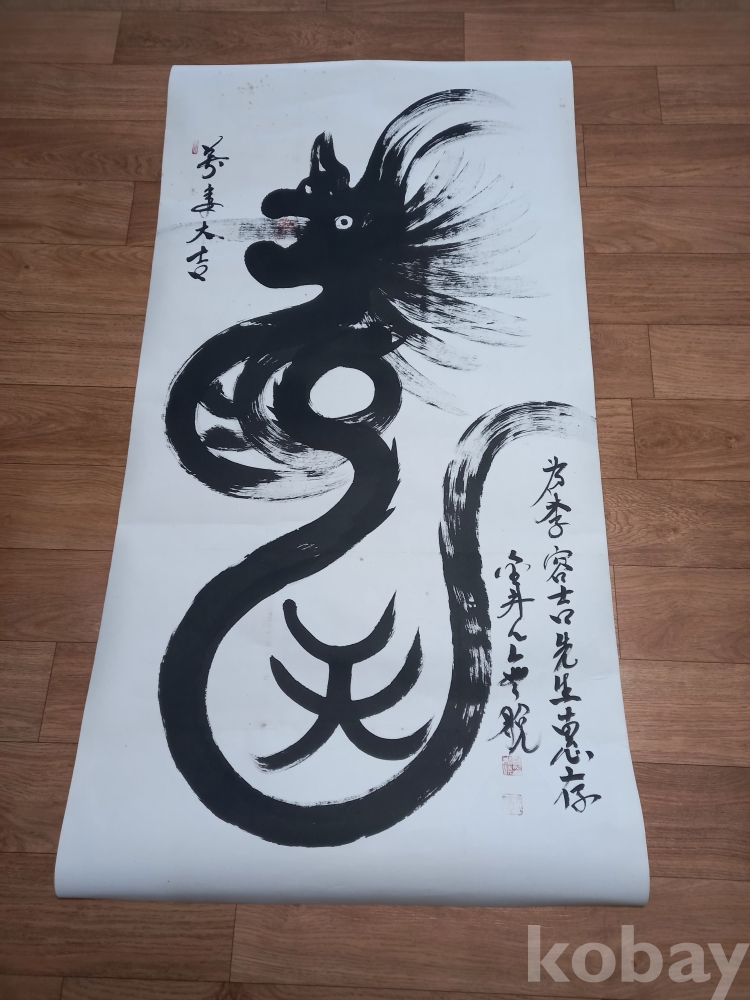 萬事大吉
為李容吉先生惠存
金井
kobay